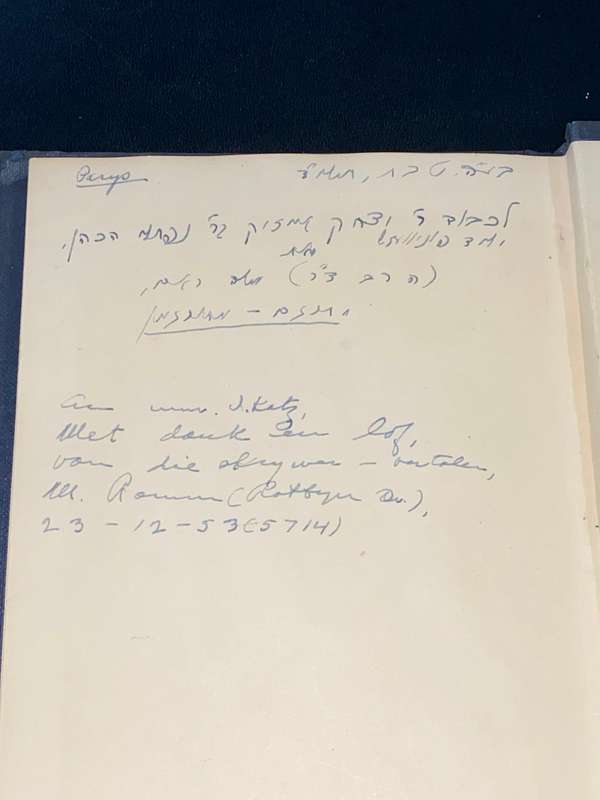 Parys
בע"ה. טבת, תשי"ד
לכבוד ר' יצחק אייזיק בר' נפתלי הכהן,
מאת
(הרב ד"ר) משה ראם,
Aan mnr. I. Katz,
Met dank en lof,
van die skrywer – vertaler,
M. Romm (Rabbyn Dr.),
23-12-53 (5714)